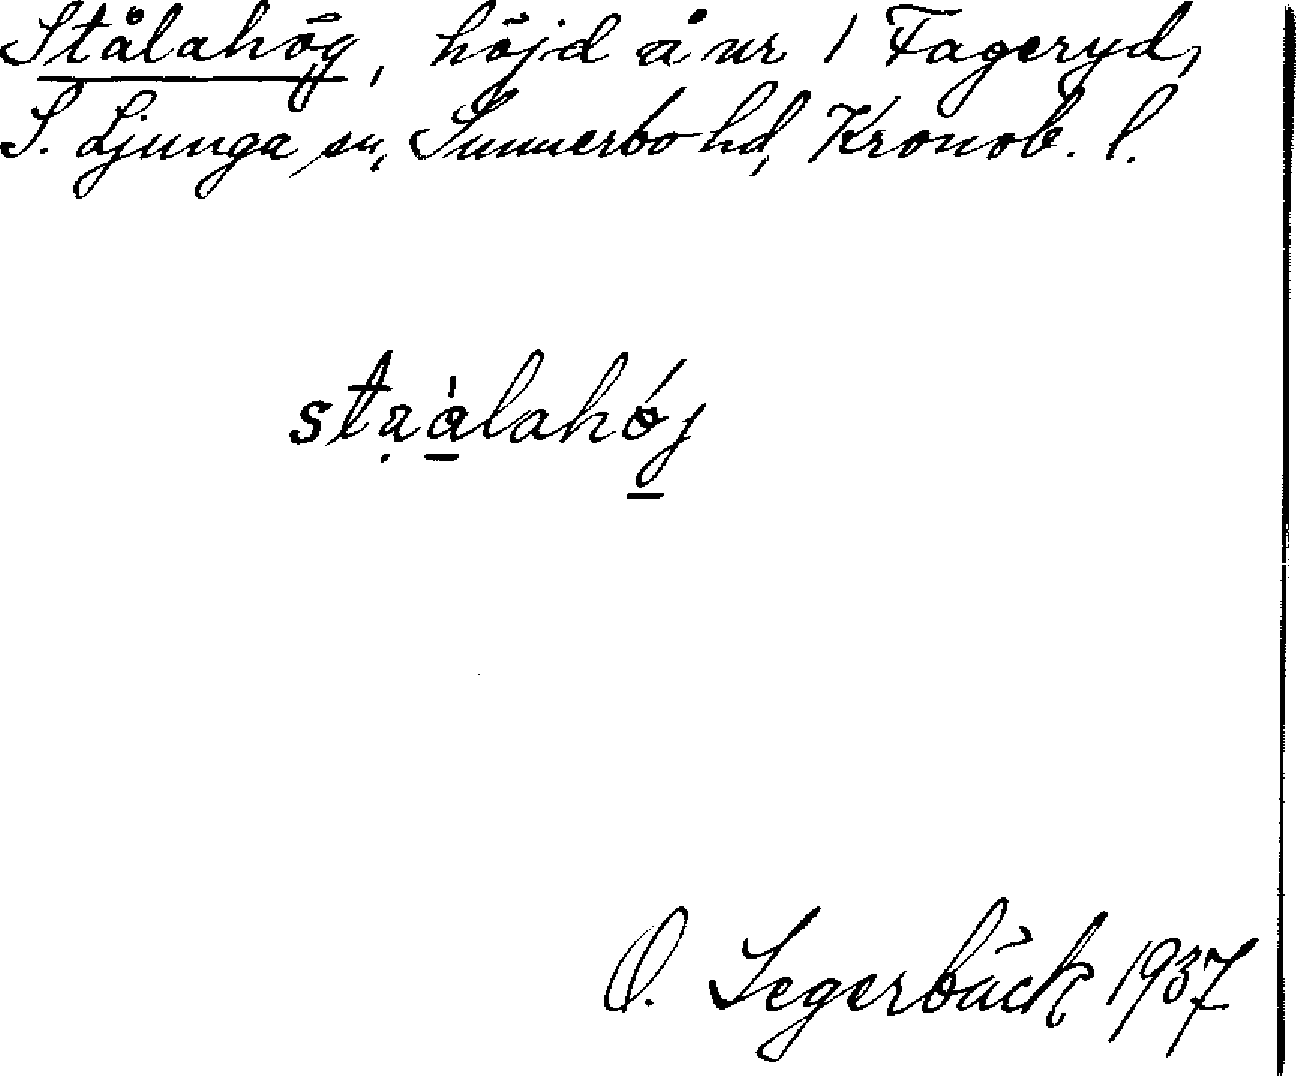 Stålahög, höjd å nr 1 Fageryd,
S. Ljunga sn, Sunnerbo hd, Kronob. l.
strålahöj
O. Segerbäck 1937